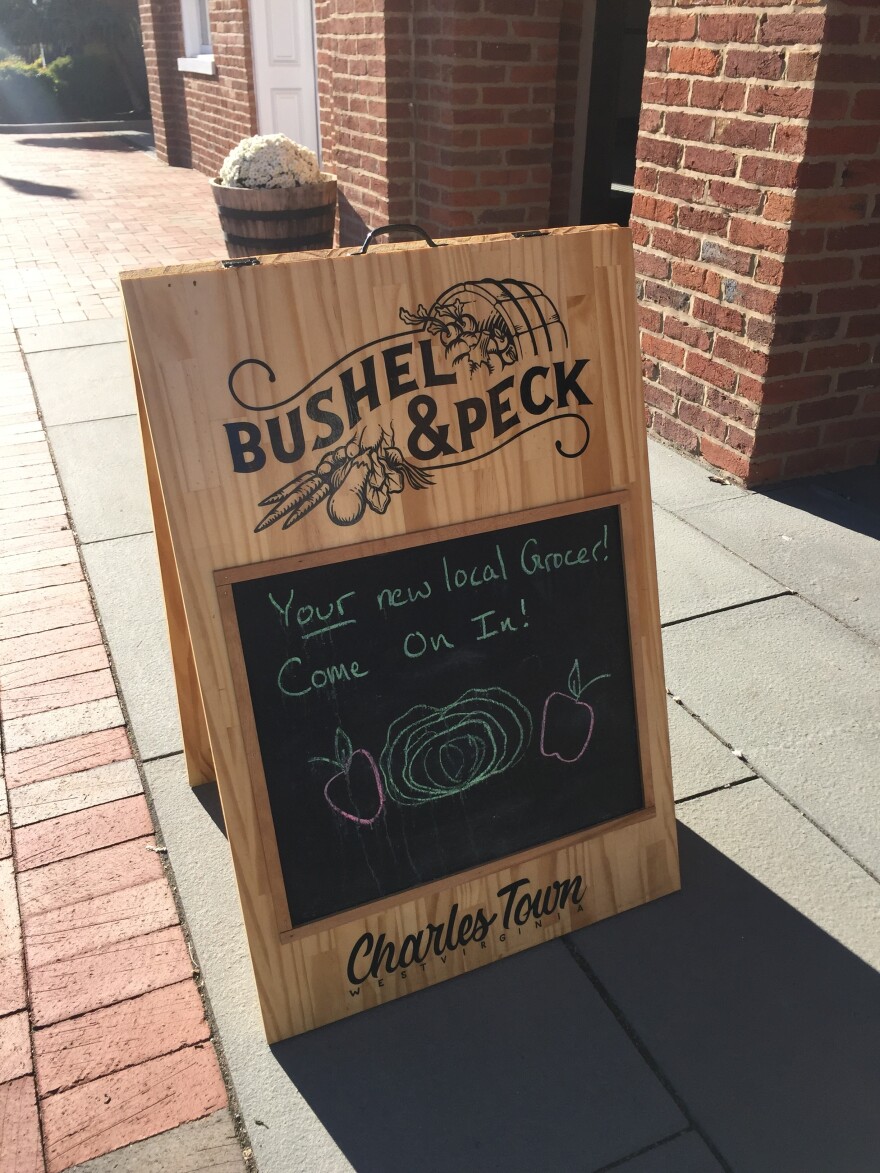 BUSHEL
& PECK
Your new local Grocer!
Come On In!
Charles Town
WEST VIRGINIA